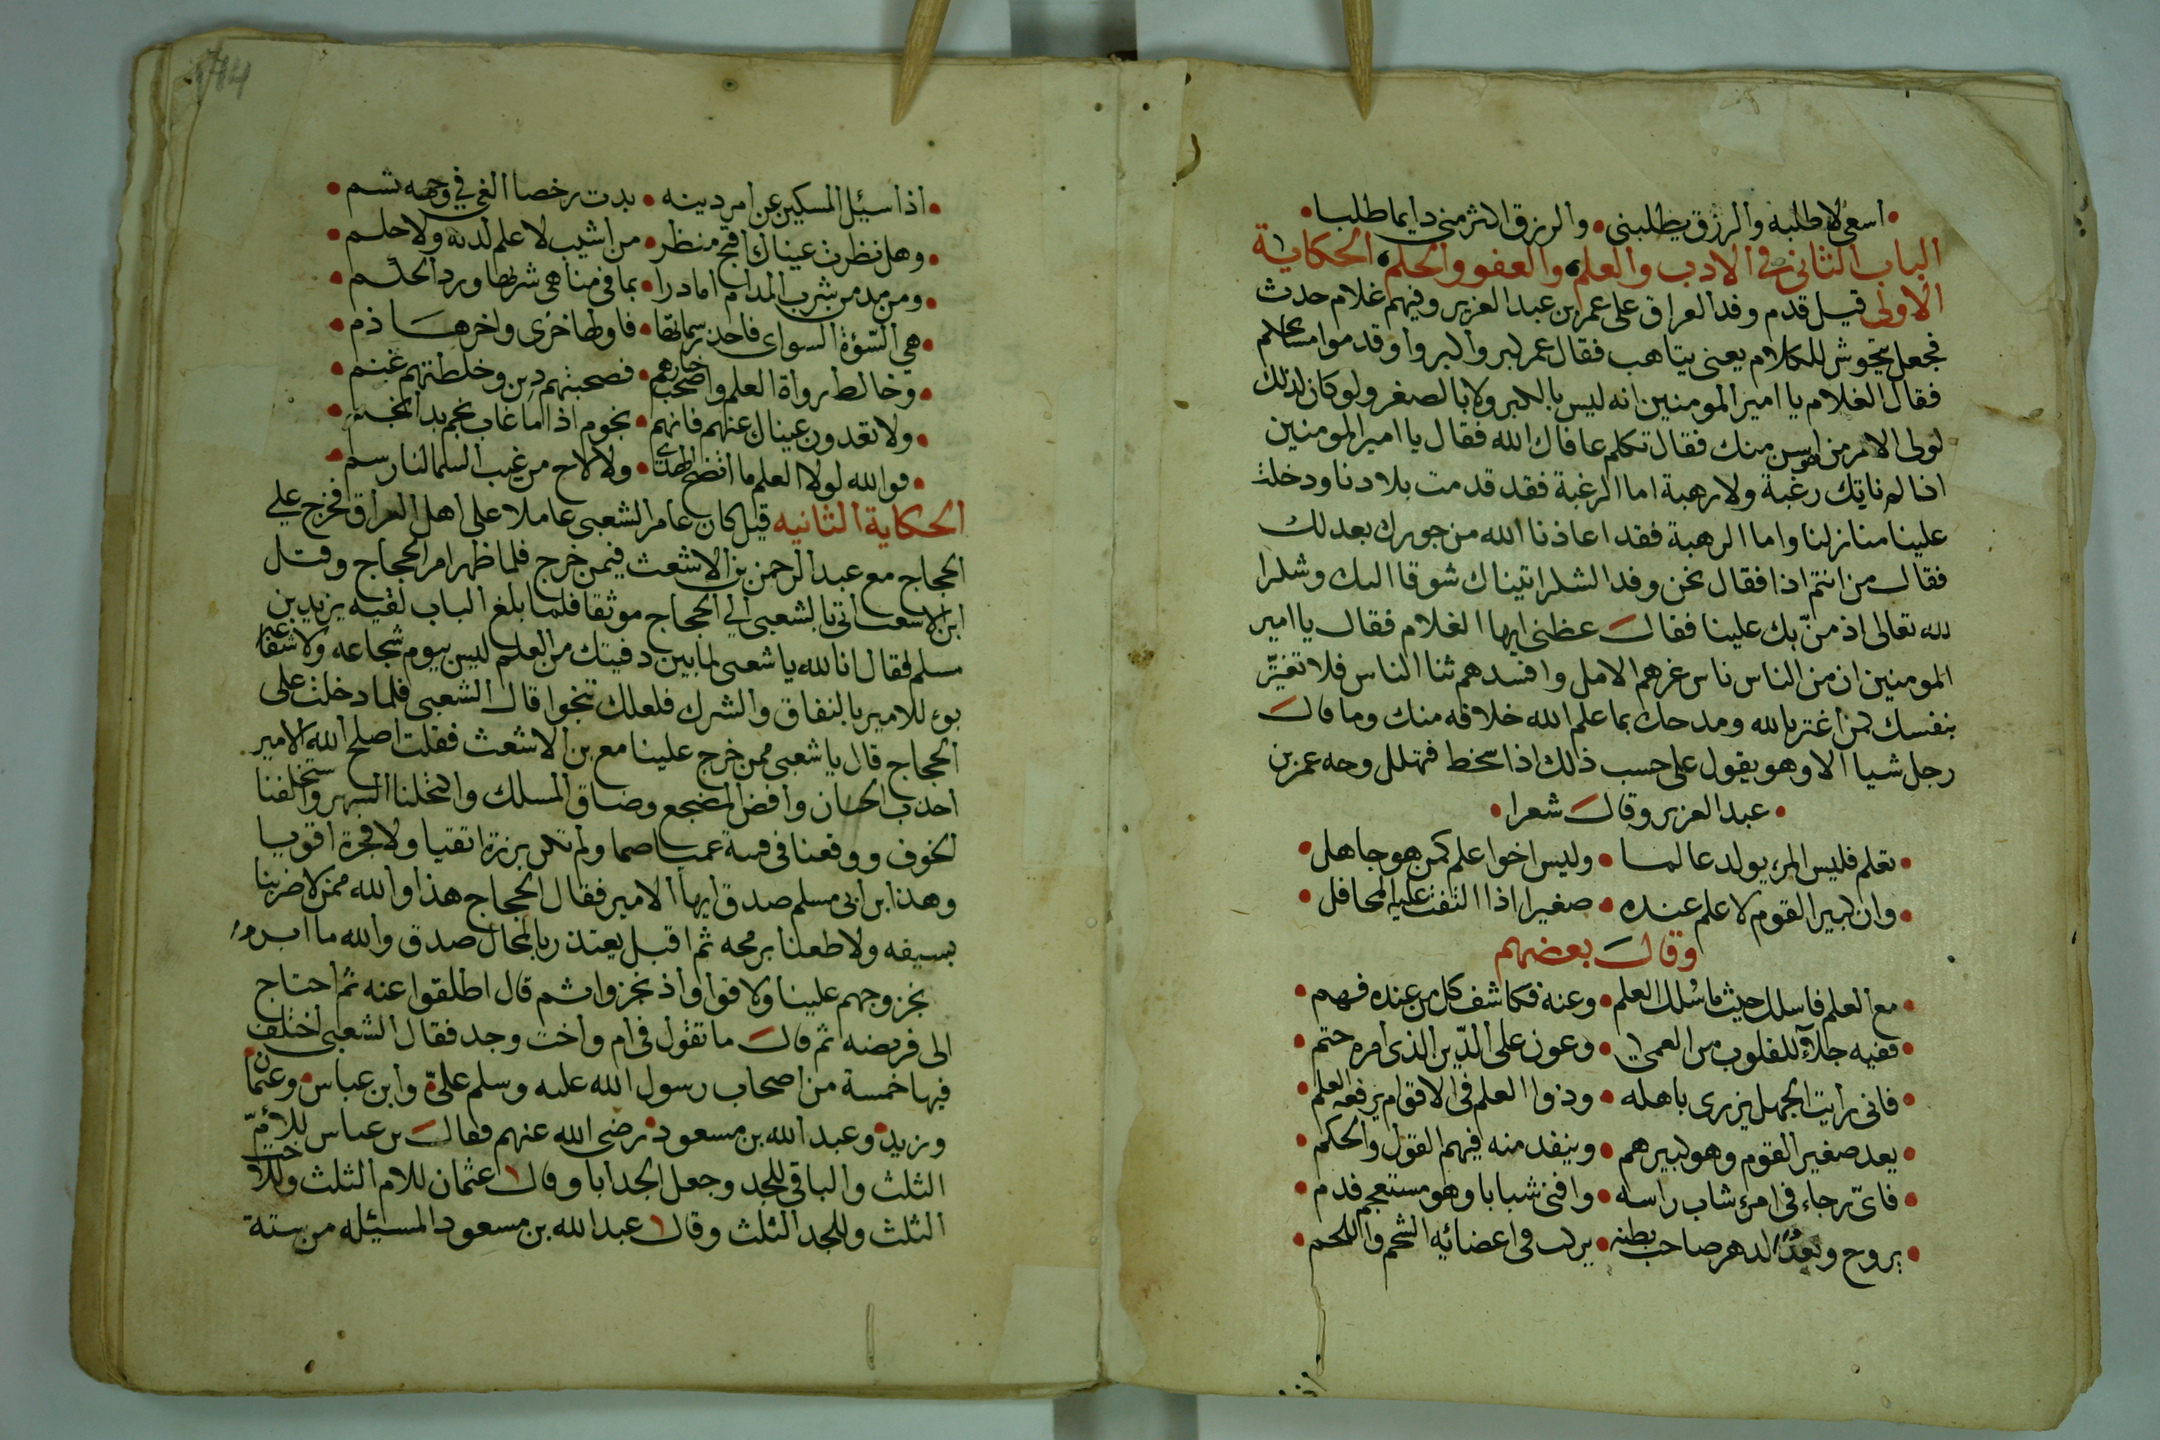 اسعى لاطلبه والرزق يطلبنى • والرزق اكثر منى دايما طلبا
الباب الثانى فى الادب والعلم والعفو والحلم الحكاية
الاولى قيل قدم وفد العراق على عمر بن عبد العزيز وفيهم غلام حدث
فجعل يتحوش للكلام يعنى يتاهب فقال عمر كبروا كبروا وقدموا مشايخكم
فقال الغلام يا امير المومنين انه ليس بالكبر ولا بالصغر ولو كان كذلك
لولى الامر من هو اسن منك فقال تكلم عافاك الله فقال يا امير المومنين
انا لم ناتيك رغبة ولا رهبة اما الرغبة فقد قدمت بلادنا ودخلت
علينا منازلنا واما الرهبة فقد اعاذنا الله من جورك بعدلك
فقال من انتم اذا فقال نحن وفد الشكر اتيناك شوقا اليك وشكرا
لله تعالى اذ منّ بك علينا فقال عظنى ايها الغلام فقال يا امير
المومنين ان من الناس ناس غرهم الامل وافسدهم ثنا الناس فلا تغترّ
بنفسك كمن اغتر بالله ومدحك بما علم الله خلافه منك وما قال
رجل شيا الا وهو يقول على حسب ذلك اذا سخط فتهلل وجه عمر بن
• عبد العزيز وقال شعرا •
• تعلم فليس المرء يولد عالما • وليس اخوا علم كمن هو جاهل •
• وان كبير القوم لا علم عنده • صغيرا اذا التفت عليه المحافل •
وقال بعضهم
• مع العلم فاسلك حيث ما سُلك العلم • وعنه فكاشف كل من عنده فهم •
• ففيه جلآء للقلوب من العمى • وعون على الدّين الذى امره حتم •
• فانى رايت الجهل يزرى باهله • وذوا العلم فى الاقوام يرفعه العلم •
• يعد صغير القوم وهو كبيرهم • وينفد منه فيهم القول والحكم •
• فاىّ رجاء فى امرئ شاب راسه • وافنى شبابا وهو مستعجم فدم •
• يروح ويغدُو الدهر صاحب بطنه • يركب فى اعضائه الشحم واللحم •
• اذا سيئل المسكين عن امر دينه • بدت رخصا الغى فى وجهه تسم •
• وهل نظرت عيناك اقبح منظر • من اشيب لا علم لديه ولا حلم •
• هى السّؤة السواى فاحذر سماتها • فاولها خزى واخرها ذم •
• وخالط رواة العلم واصحب خيارهم • فصحبتهم زين وخلطتهم غنم •
• ولا تعدون عيناك عنهم فانهم • نجوم اذا ما غاب نجم بدا نجم •
• فوالله لولا العلم ما اتضح الهدى • ولا لاح من غيب السما لنا رسم •
الحكاية الثانيه قيل كان عامر الشعبى عاملا على اهل العراق فخرج على
الحجاج مع عبد الرحمن بن الاشعث فيمن خرج فلما ظهر امر الحجاج وقتل
ابن الاشعث اتى بالشعبى الى الحجاج موثقا فلما بلغ الباب لقيه يزيد بن
مسلم فقال انا لله يا شعبى لما بين دفيتك من العلم ليس بيوم شجاعه ولا شفاعه
بوء للامير بالنفاق والشرك فلعلك تنجوا قال الشعبى فلما دخلت على
الحجاج قال يا شعبى ممن خرج علينا مع بن الاشعث فقلت اصلح الله الامير
وضاق المسلك واكتحلنا السهر واستحلفنا
الخوف ووقعنا فى فتنة عميا صما ولم تكن بررة اتقيا ولا فجرة اقويا
وهذا ابن ابى مسلم صدق ايها الامير فقال الحجاج هذا والله ممن لا ضربنا
بسيفه ولا طعنا برمحه ثم اقبل يعتذر بالمحال صدق والله ما ابروا
بخروجهم علينا ولا قووا اذ فجروا ثم قال اطلقوا عنه ثم احتاج
الى فريضه ثم قال ما تقول فى ام واخت وجد فقال الشعبى اختلف
فيها خمسة من اصحاب رسول الله عليه وسلم علىّ وابن عباس وعثمان
وزيد وعبد الله بن مسعود رضى الله عنهم فقال بن عباس للأمّ
الثلث والباقى للجد وجعل الجد ابا وقال عثمان للام الثلث وللاخت
الثلث وللجد الثلث وقال عبد الله بن مسعود المسيئله من ستة